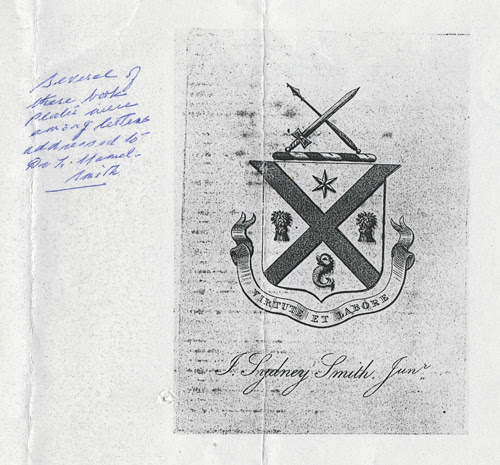 Several of
these book
plates were
among letters
addressed to
Dr L. Hamel-
Smith
VIRTUTE ET LABORE
J. Sydney Smith. Junr